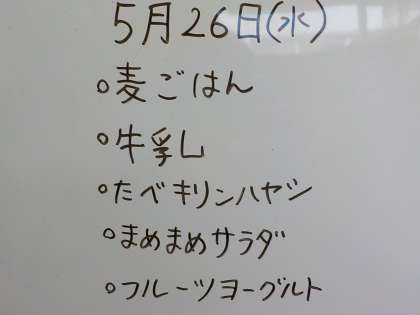 5月26日(水)
○麦ごはん
○牛乳
○たべキリンハヤシ
○まめまめサラダ
○フルーツヨーグルト